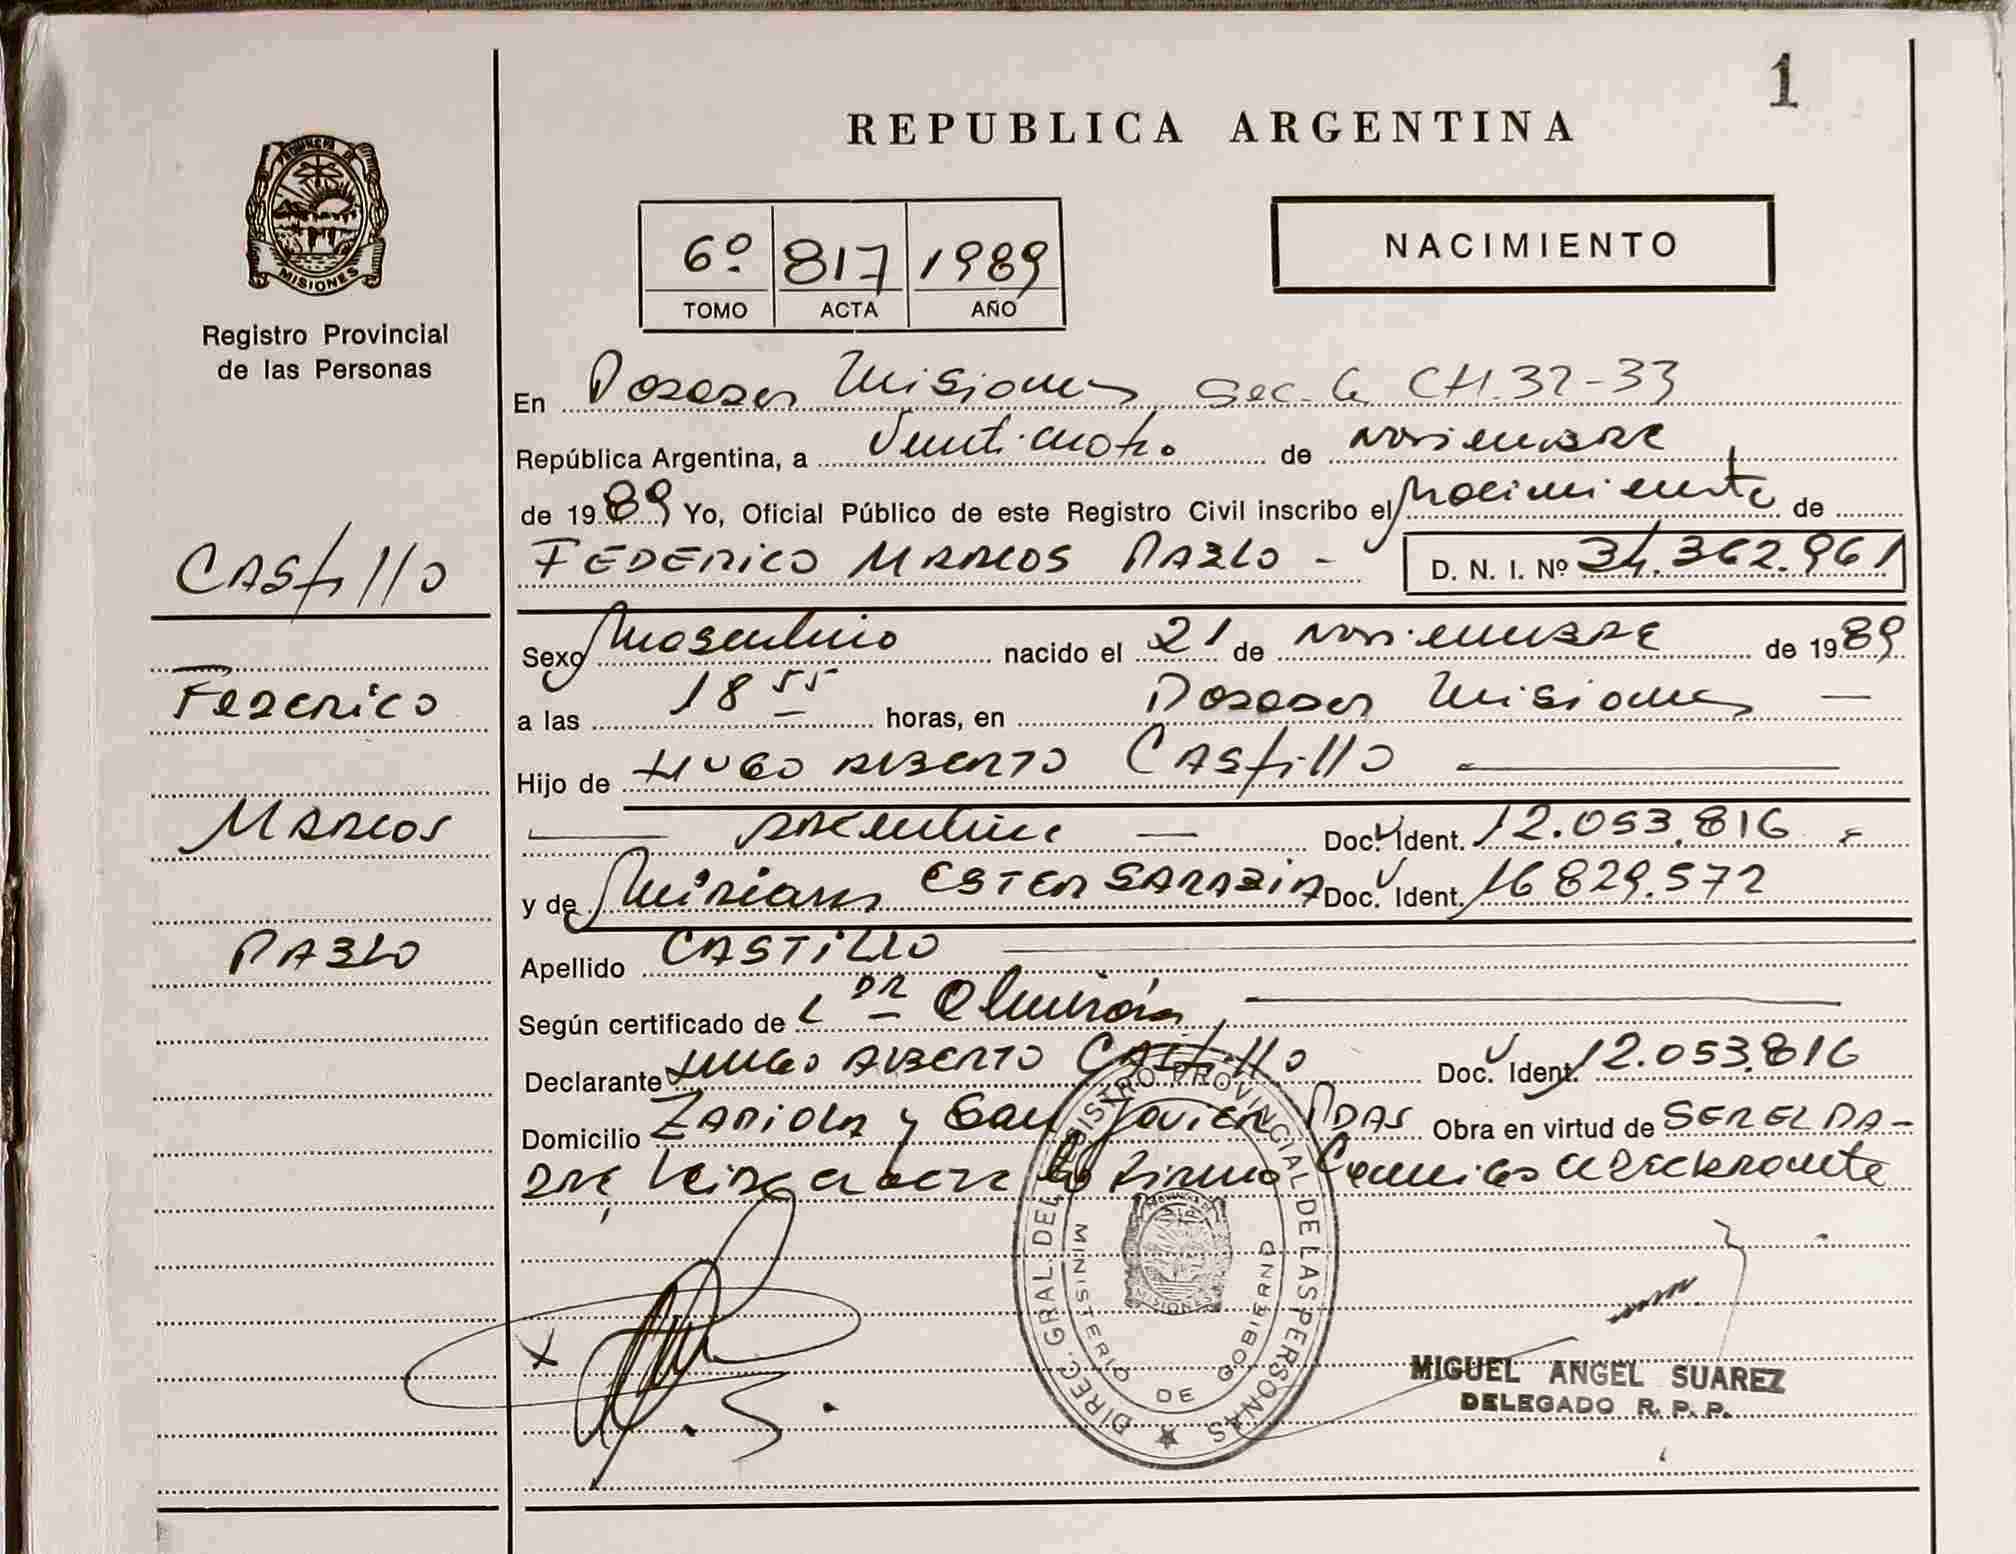 1
REPUBLICA ARGENTINA
PROVINCIA DE
MISIONES
Registro Provincial
de las Personas
6º 817 1989
TOMO ACTA AÑO
NACIMIENTO
En Posadas Misiones Sec. 6 CH. 32-33
República Argentina, a Veinticuatro de noviembre
de 1989 Yo, Oficial Público de este Registro Civil inscribo el nacimiento de
Castillo
FEDERICO MARCOS PABLO - D. N. I. Nº 34.362.961
Sexo Masculino nacido el 21 de noviembre de 1989
Federico
a las 18 55 horas, en Posadas Misiones —
Hijo de HUGO ALBERTO Castillo
Marcos
— argentino — Doc. Ident. 12.053.816
y de Miriam ESTER SARABIA Doc. Ident. 16829.572
PABLO
Apellido CASTILLO
Según certificado de L DR Olmirón
Declarante HUGO ALBERTO Castillo Doc. Ident. 12.053.816
Domicilio Zapiola y San Javier PDAS Obra en virtud de SER EL PA-
DRE Leida el acta la firma Conmigo el declarante
DIREC. GRAL. DEL REGISTRO PROVINCIAL DE LAS PERSONAS
MINISTERIO DE GOBIERNO
MISIONES
MIGUEL ANGEL SUAREZ
DELEGADO R. P. P.